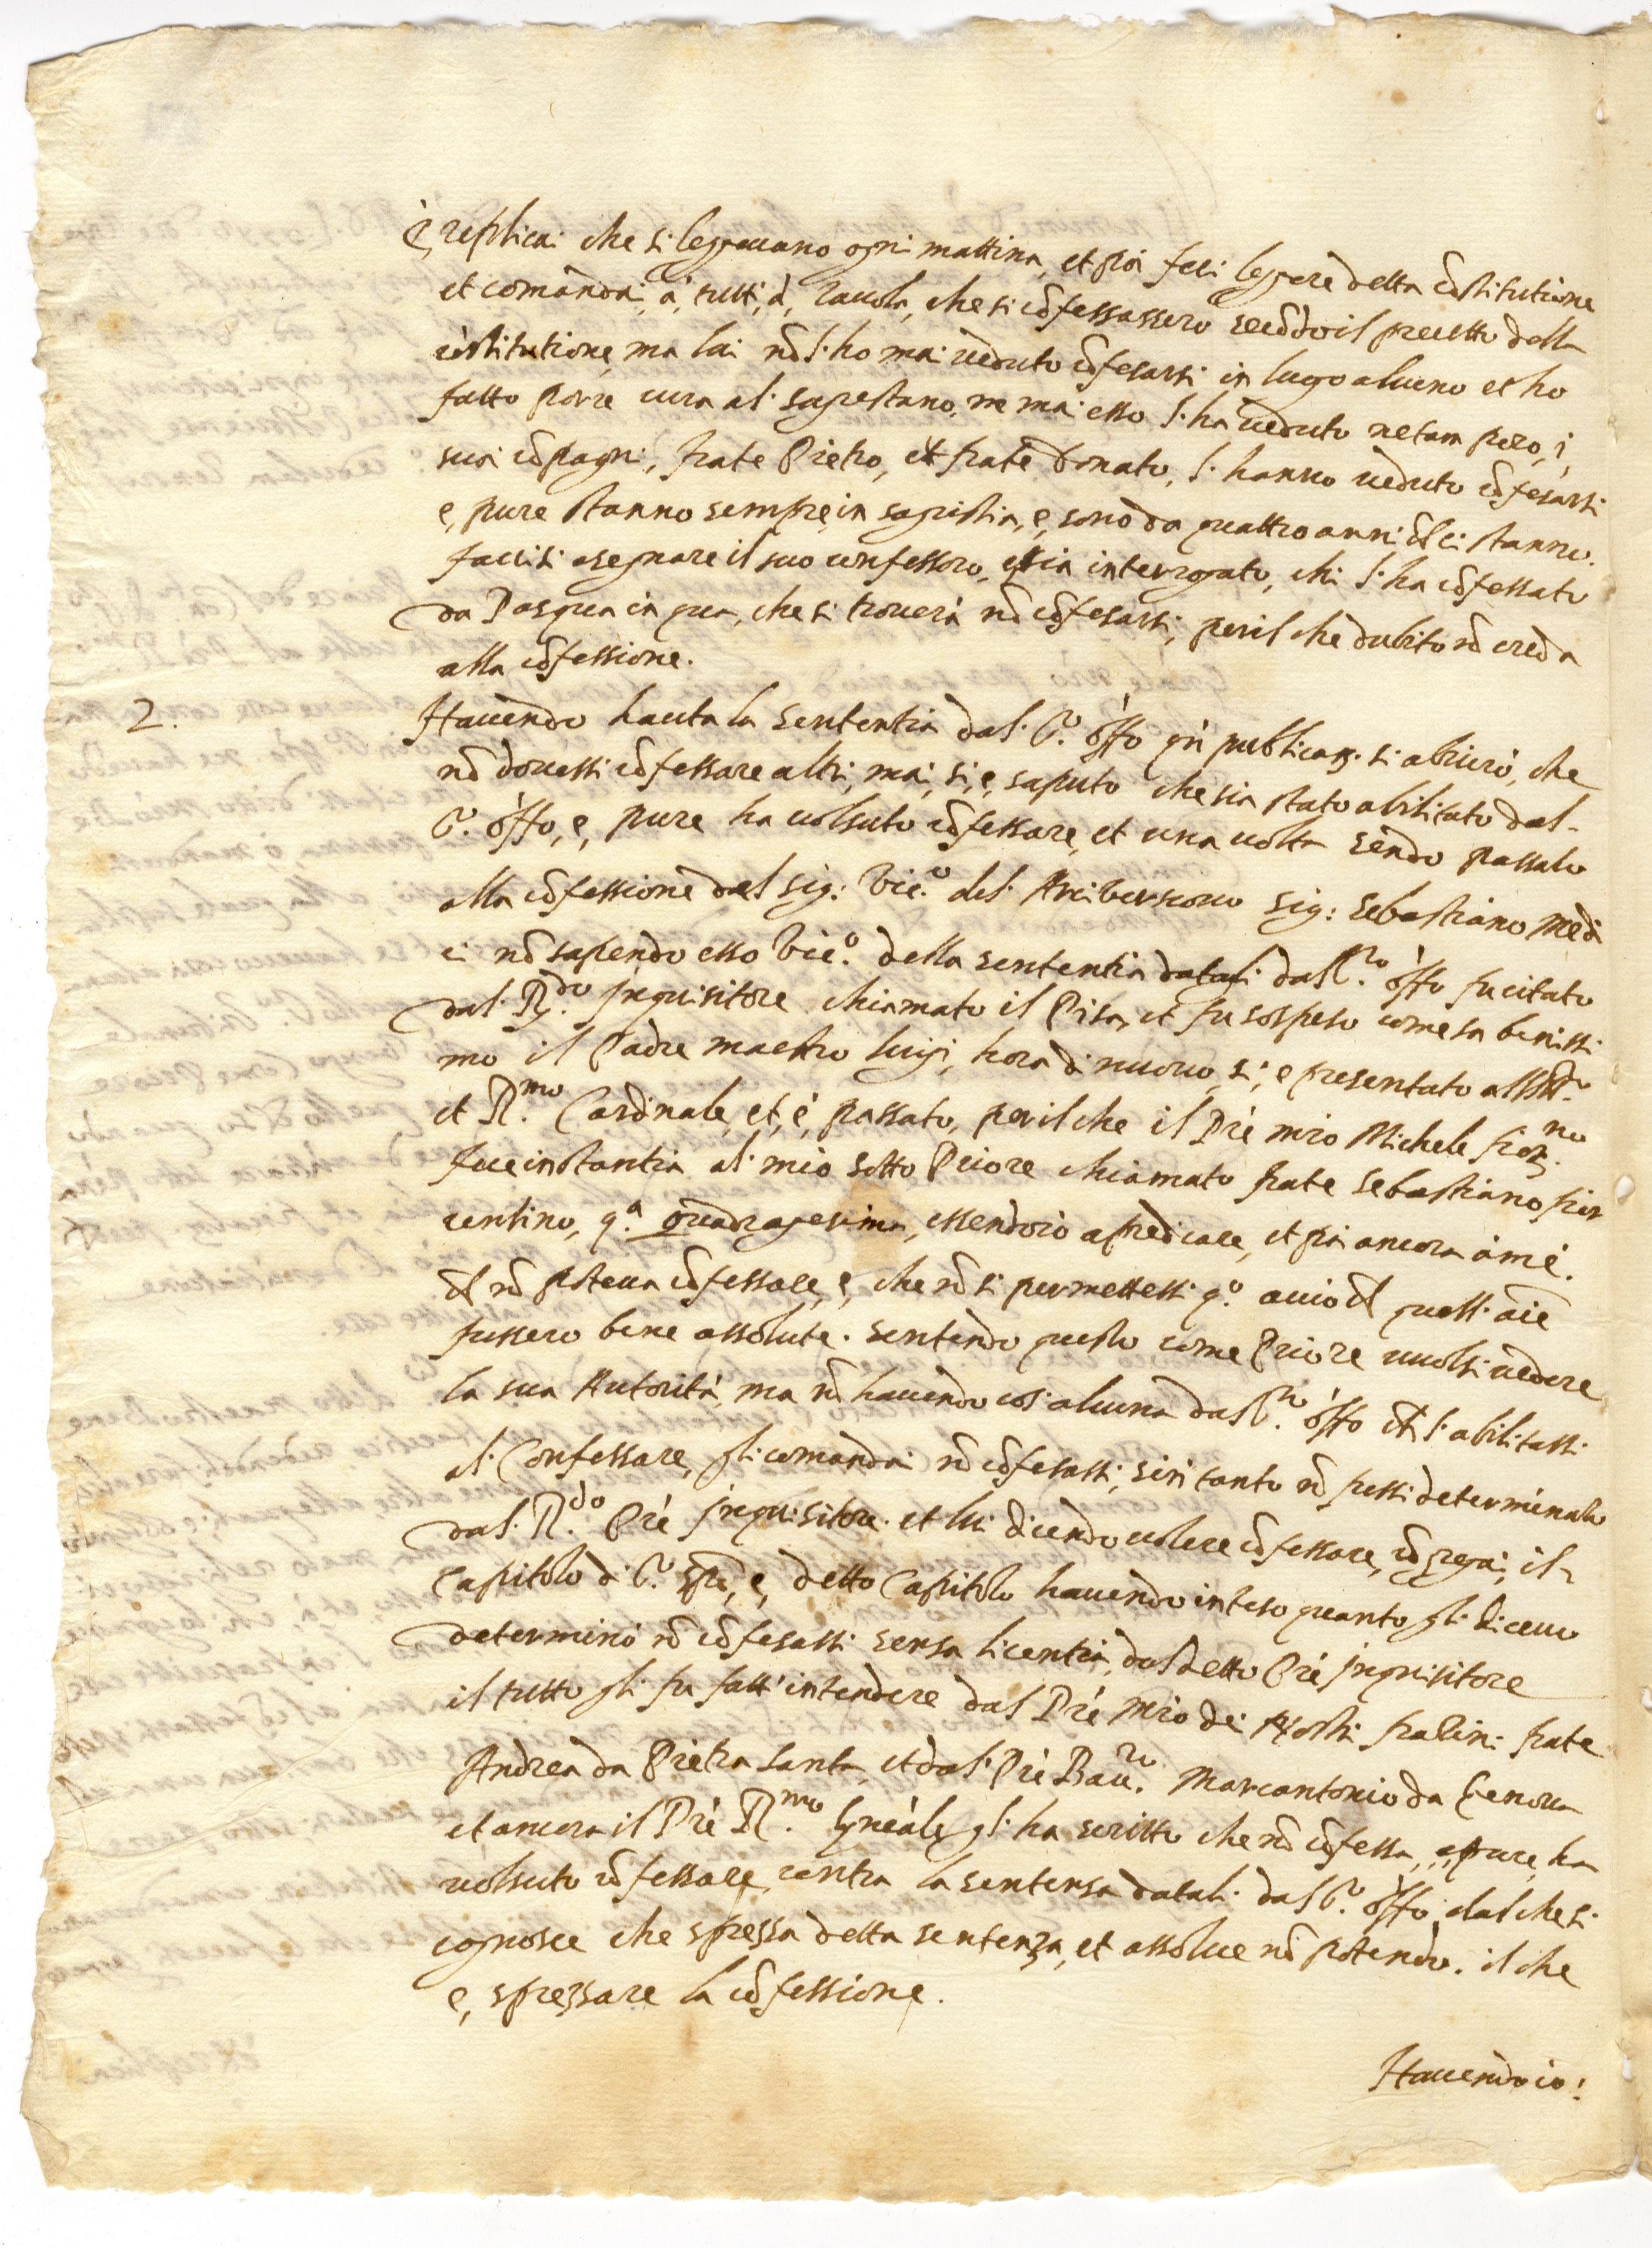 e, replicai che si leggevano ogni mattina, et poi feci leggere detta cõstitutione
et comandai, à, tutti, à, tavola, che si cõfessassero secõdo il precetto della
cõstitutione, ma lui nõ l'ho mai veduto cõfesarsi in lugo alcuno et ho
fatto porre cura al sagrestano, ne mai esso l'ha veduto ne tam poco, i,
suoi cõpagni, frate Pietro, et frate Donato, l'hanno veduto cõfesarsi
e, pure stanno sempre in sagristia, e, sono da quattro anni ch ci stanno.
faccisi asegnare il suo confessoro, e sia interrogato, chi l'ha cõfessato
da Pasqua in qua, che si troverà nõ cõfesarsi, per il che dubito nõ creda
alla cõfessione.
2. Havendo hauta la sententia dal S.to offo publicam. si abiurò, che
nõ dovessi cõfessare altri, mai, si, e, saputo che sia stato abilitato dal
S.to offo, e, pure ha volsuto cõfessare, et una volta sendo passato
alla cõfessione dal sig: Vic.o del Arcivescovo sig: Sebastiano Medi
ci nõ sapendo esso Vic.o della sententia datali dal S.to offo fu citato
dal R.do Inquisitore chiamato il Pisa, et fu sospeso come sa benissi
mo il Padre maestro luigi, hora di nuovo, si, e presentato all
et R.mo Cardinale, et, è, passato, per il che il Prè mro Michele fior.no
fece instantia al mio sotto Priore chiamato frate Sebastiano fior
entino, q.a quadragesima, essendo io a predicare, et poi ancora à me.
ch nõ poteva cõfessare, e, che nõ si permettessi q.o acciò ch quelle aie
fussero bene assolute. Sentendo questo come Priore vuolsi vedere
la sua Autorità, ma nõ havendo cos'alcuna dal S.to offo ch l'abilitassi
al Confessare, gli comandai nõ cõfesassi, sin tanto nõ fussi determinato
dal R.do Prè Inquisitore. et lui dicendo volere cõfessare, cõgregai, il
Capitolo di S.to spo, e, detto Capitolo havendo inteso quanto gli dicevo
determinò nõ cõfesassi sensa licentia, dal detto Prè Inquisitore
il tutto gli fu fatt'intendere dal Prè Mro de nostri fratini frate
Andrea da Pietra Santa, et dal Prè Bacc.ro Marcantonio da Genova
et ancora il Prè R.mo Gnèàle gl'ha scritto che nõ cõfessa, e, pure, ha
volsuto cõfessare, contra la sentensa datali dal S.to offo, dal che si
cognosce che sprezza detta sentenza, et assolve nõ potendo. il che
e, sprezzare la cõfessione.
Havendo io: